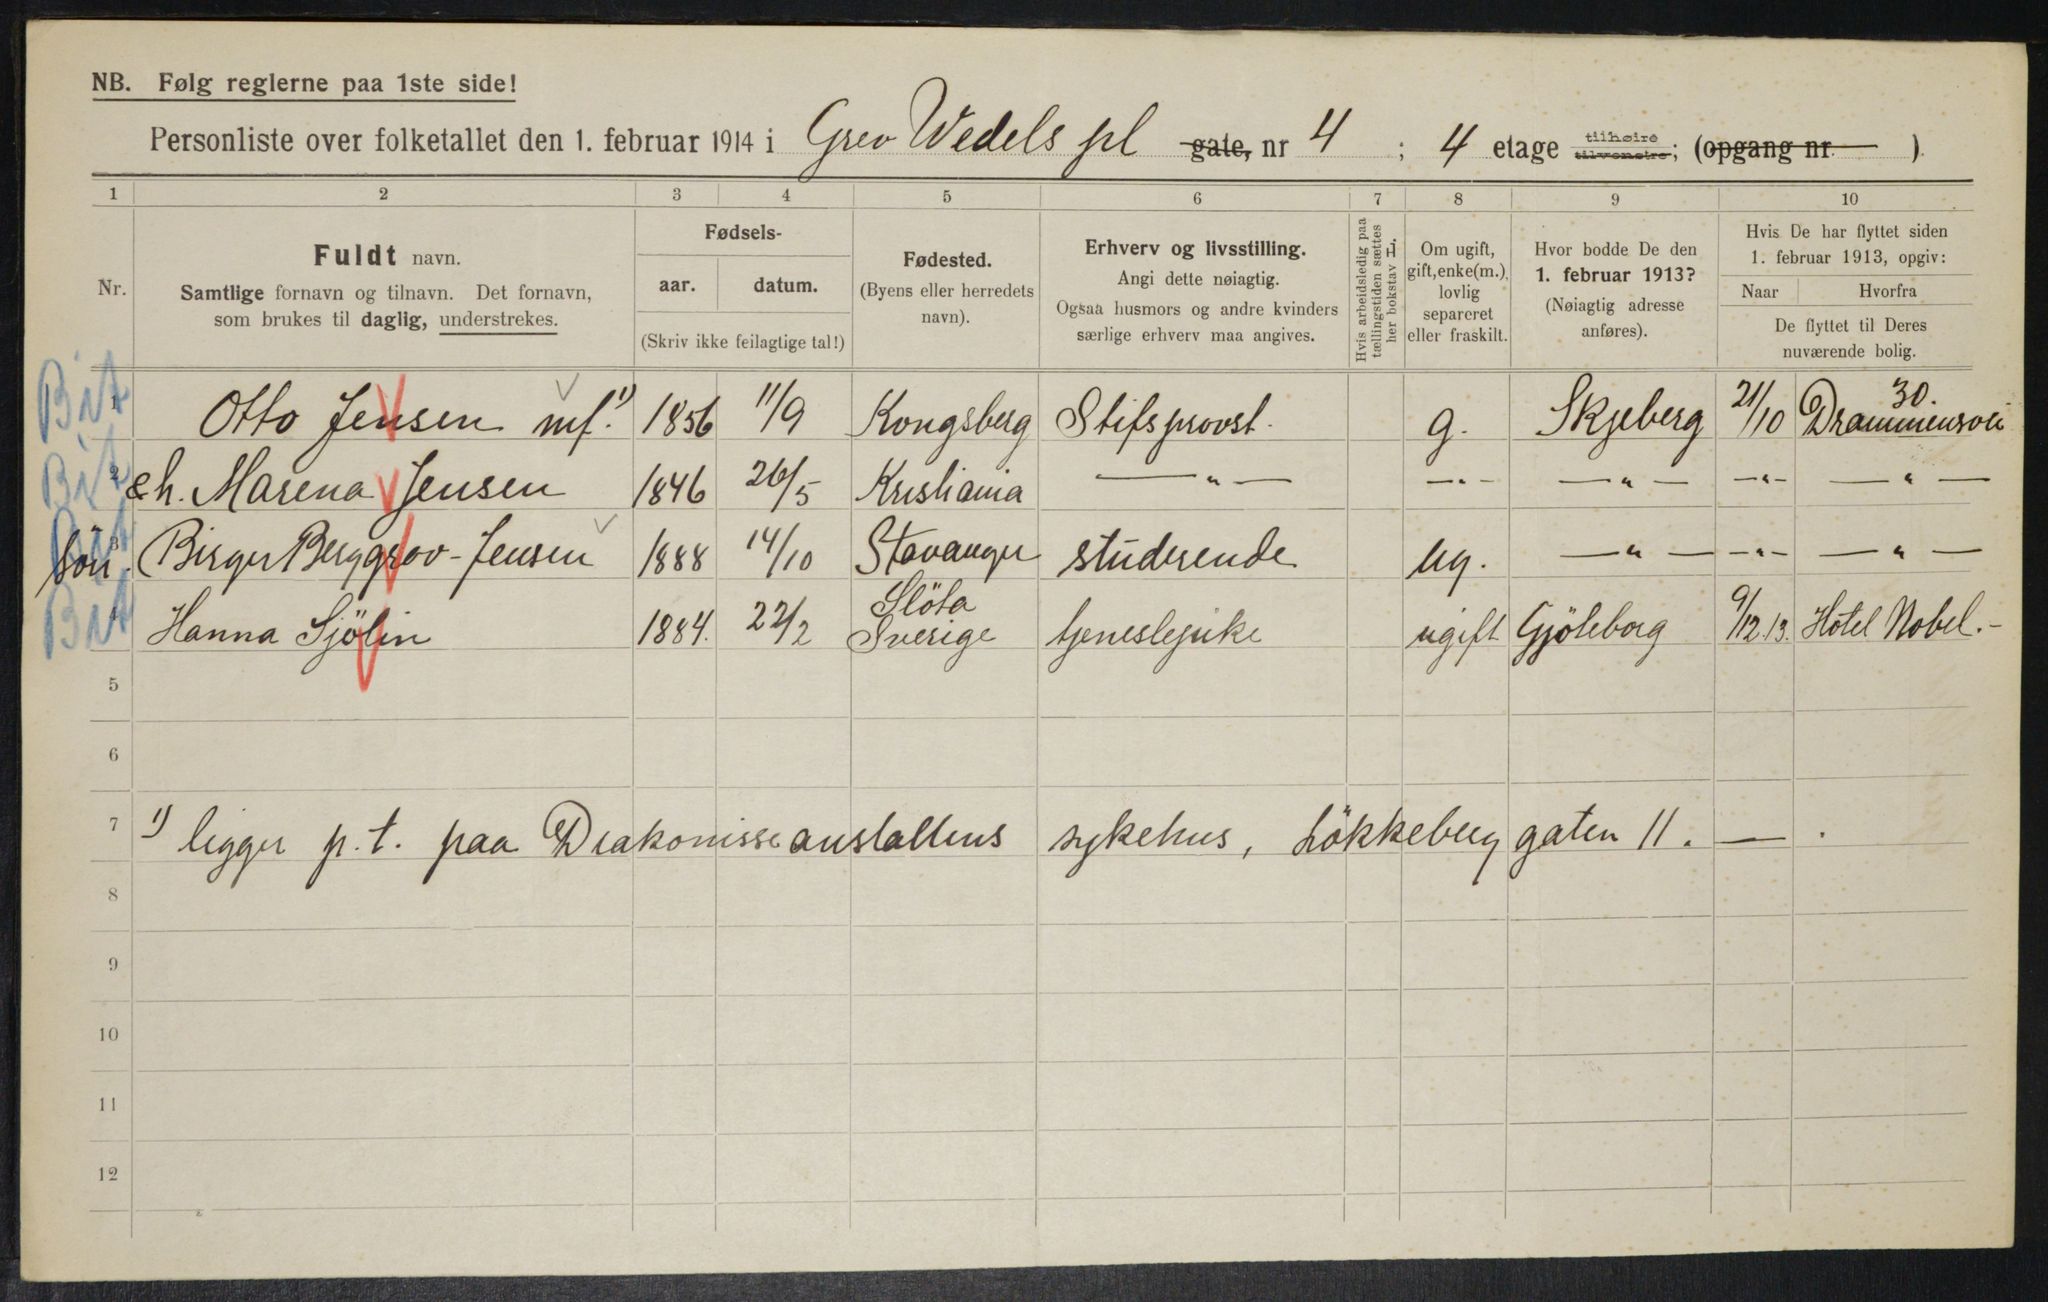 NB. Følg reglerne paa 1ste side!
Personliste over folketallet den 1. februar 1914 i Grev Wedels pl gate, nr 4 ; 4 etage tilhøire tilvenstre; (opgang nr )
1 2 3 4 5 6 7 8 9 10
Nr.
Fuldt navn.
Samtlige fornavn og tilnavn. Det fornavn,
som brukes til daglig, understrekes.
Fødsels-
aar. datum.
(Skriv ikke feilagtige tal!)
Fødested.
(Byens eller herredets
navn).
Erhverv og livsstilling.
Angi dette nøiagtig.
Ogsaa husmors og andre kvinders
særlige erhverv maa angives.
Hvis arbeidsledig paa
tællingstiden sættes
her bokstav L.
Om ugift,
gift, enke(m.),
lovlig
separeret
eller fraskilt.
Hvor bodde De den
1. februar 1913?
(Nøiagtig adresse
anføres).
Hvis De har flyttet siden
1. februar 1913, opgiv:
Naar Hvorfra
De flyttet til Deres
nuværende bolig.
1 Otto Jensen mf. 1) 1856 11/9 Kongsberg Stifsprovst. g. Skjeberg 21/10 30. Drammensvei
2 & h. Marena Jensen 1846 26/5 Kristiania — " — — " — — " — — " — — " —
3 Sön. Birger Berggrav-Jensen 1888 14/10 Stavanger studerende ug. — " — — " — — " —
4 Hanna Sjölin 1884. 22/2 Slöta Sverige tjenestepike ugift Gjöteborg 9/12.13. Hotel Nobel.-
5
6
7 1) ligger p.t. paa Diakonisseanstaltens sykehus, Lökkeberggaten 11. — .
8
9
10
11
12